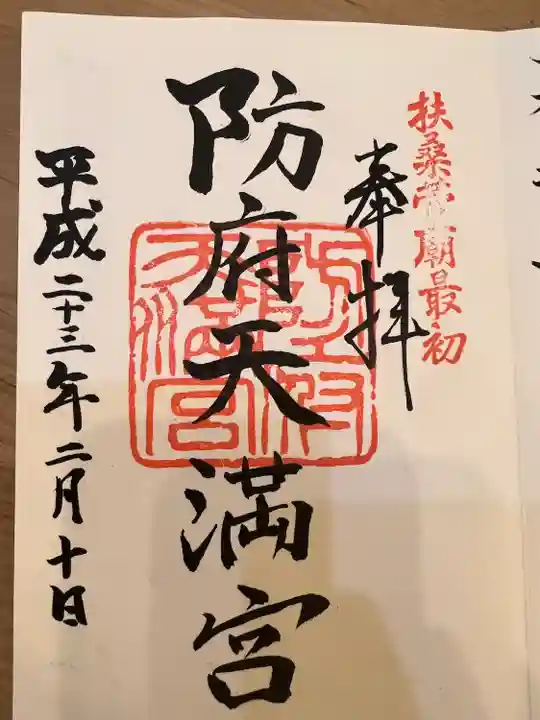 扶桑菅廟最初
奉拝
防府天満宮
平成二十三年二月十日